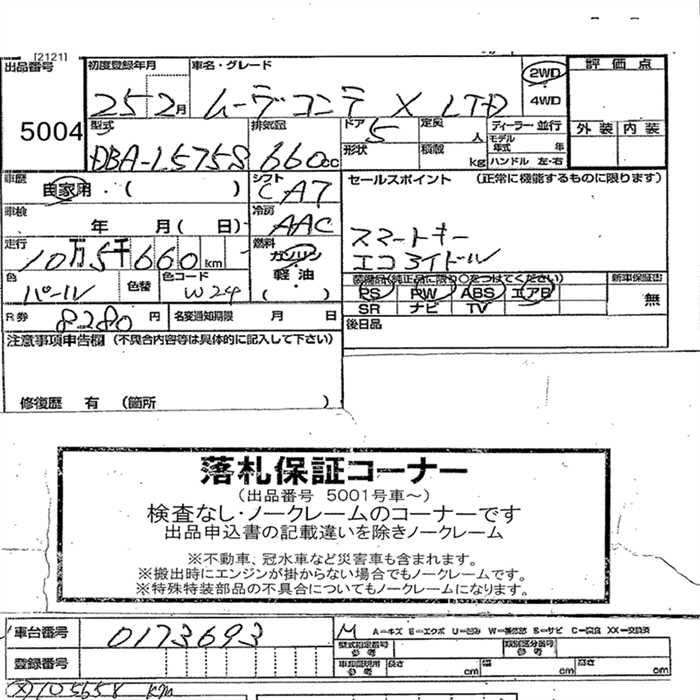 [2121]
出品番号 5004
初度登録年月 25 2月
車名・グレード ムーヴコンテ X LTD
2WD
4WD
評価点
外装 内装
型式 DBA-L575S
排気量 660cc
ドア 5
形状
定員 人
積載 kg
ディーラー・並行
モデル年式 年
ハンドル 左・右
車歴 自家用・( )
シフト CAT
セールスポイント (正常に機能するものに限ります)
スマートキー
エコアイドル
車検 年 月( 日)
冷房 AAC
走行 10万5千660km
燃料 ガソリン
軽・油
( )
色 パール
色替
色コード W24
装備品(純正品に限り○をつけてください)
PS PW ABS エアB
SR ナビ TV
新車保証書 無
後日品
R券 8280円
名変通知期限 月 日
注意事項申告欄 (不具合内容等は具体的に記入して下さい)
修復歴 有 (箇所 )
落札保証コーナー
(出品番号 5001号車~)
検査なし・ノークレームのコーナーです
出品申込書の記載違いを除きノークレーム
※不動車、冠水車など災害車も含まれます。
※搬出時にエンジンが掛からない場合でもノークレームです。
※特殊特装部品の不具合についてもノークレームになります。
車台番号 0173693
登録番号
M
A=キズ E=エクボ U=凹み W=補修跡 S=サビ C=腐食 XX=交換済
型式指定番号 参考
類別区分番号
車庫証明用 参考 長さ cm 幅 cm 高さ cm
105658 km